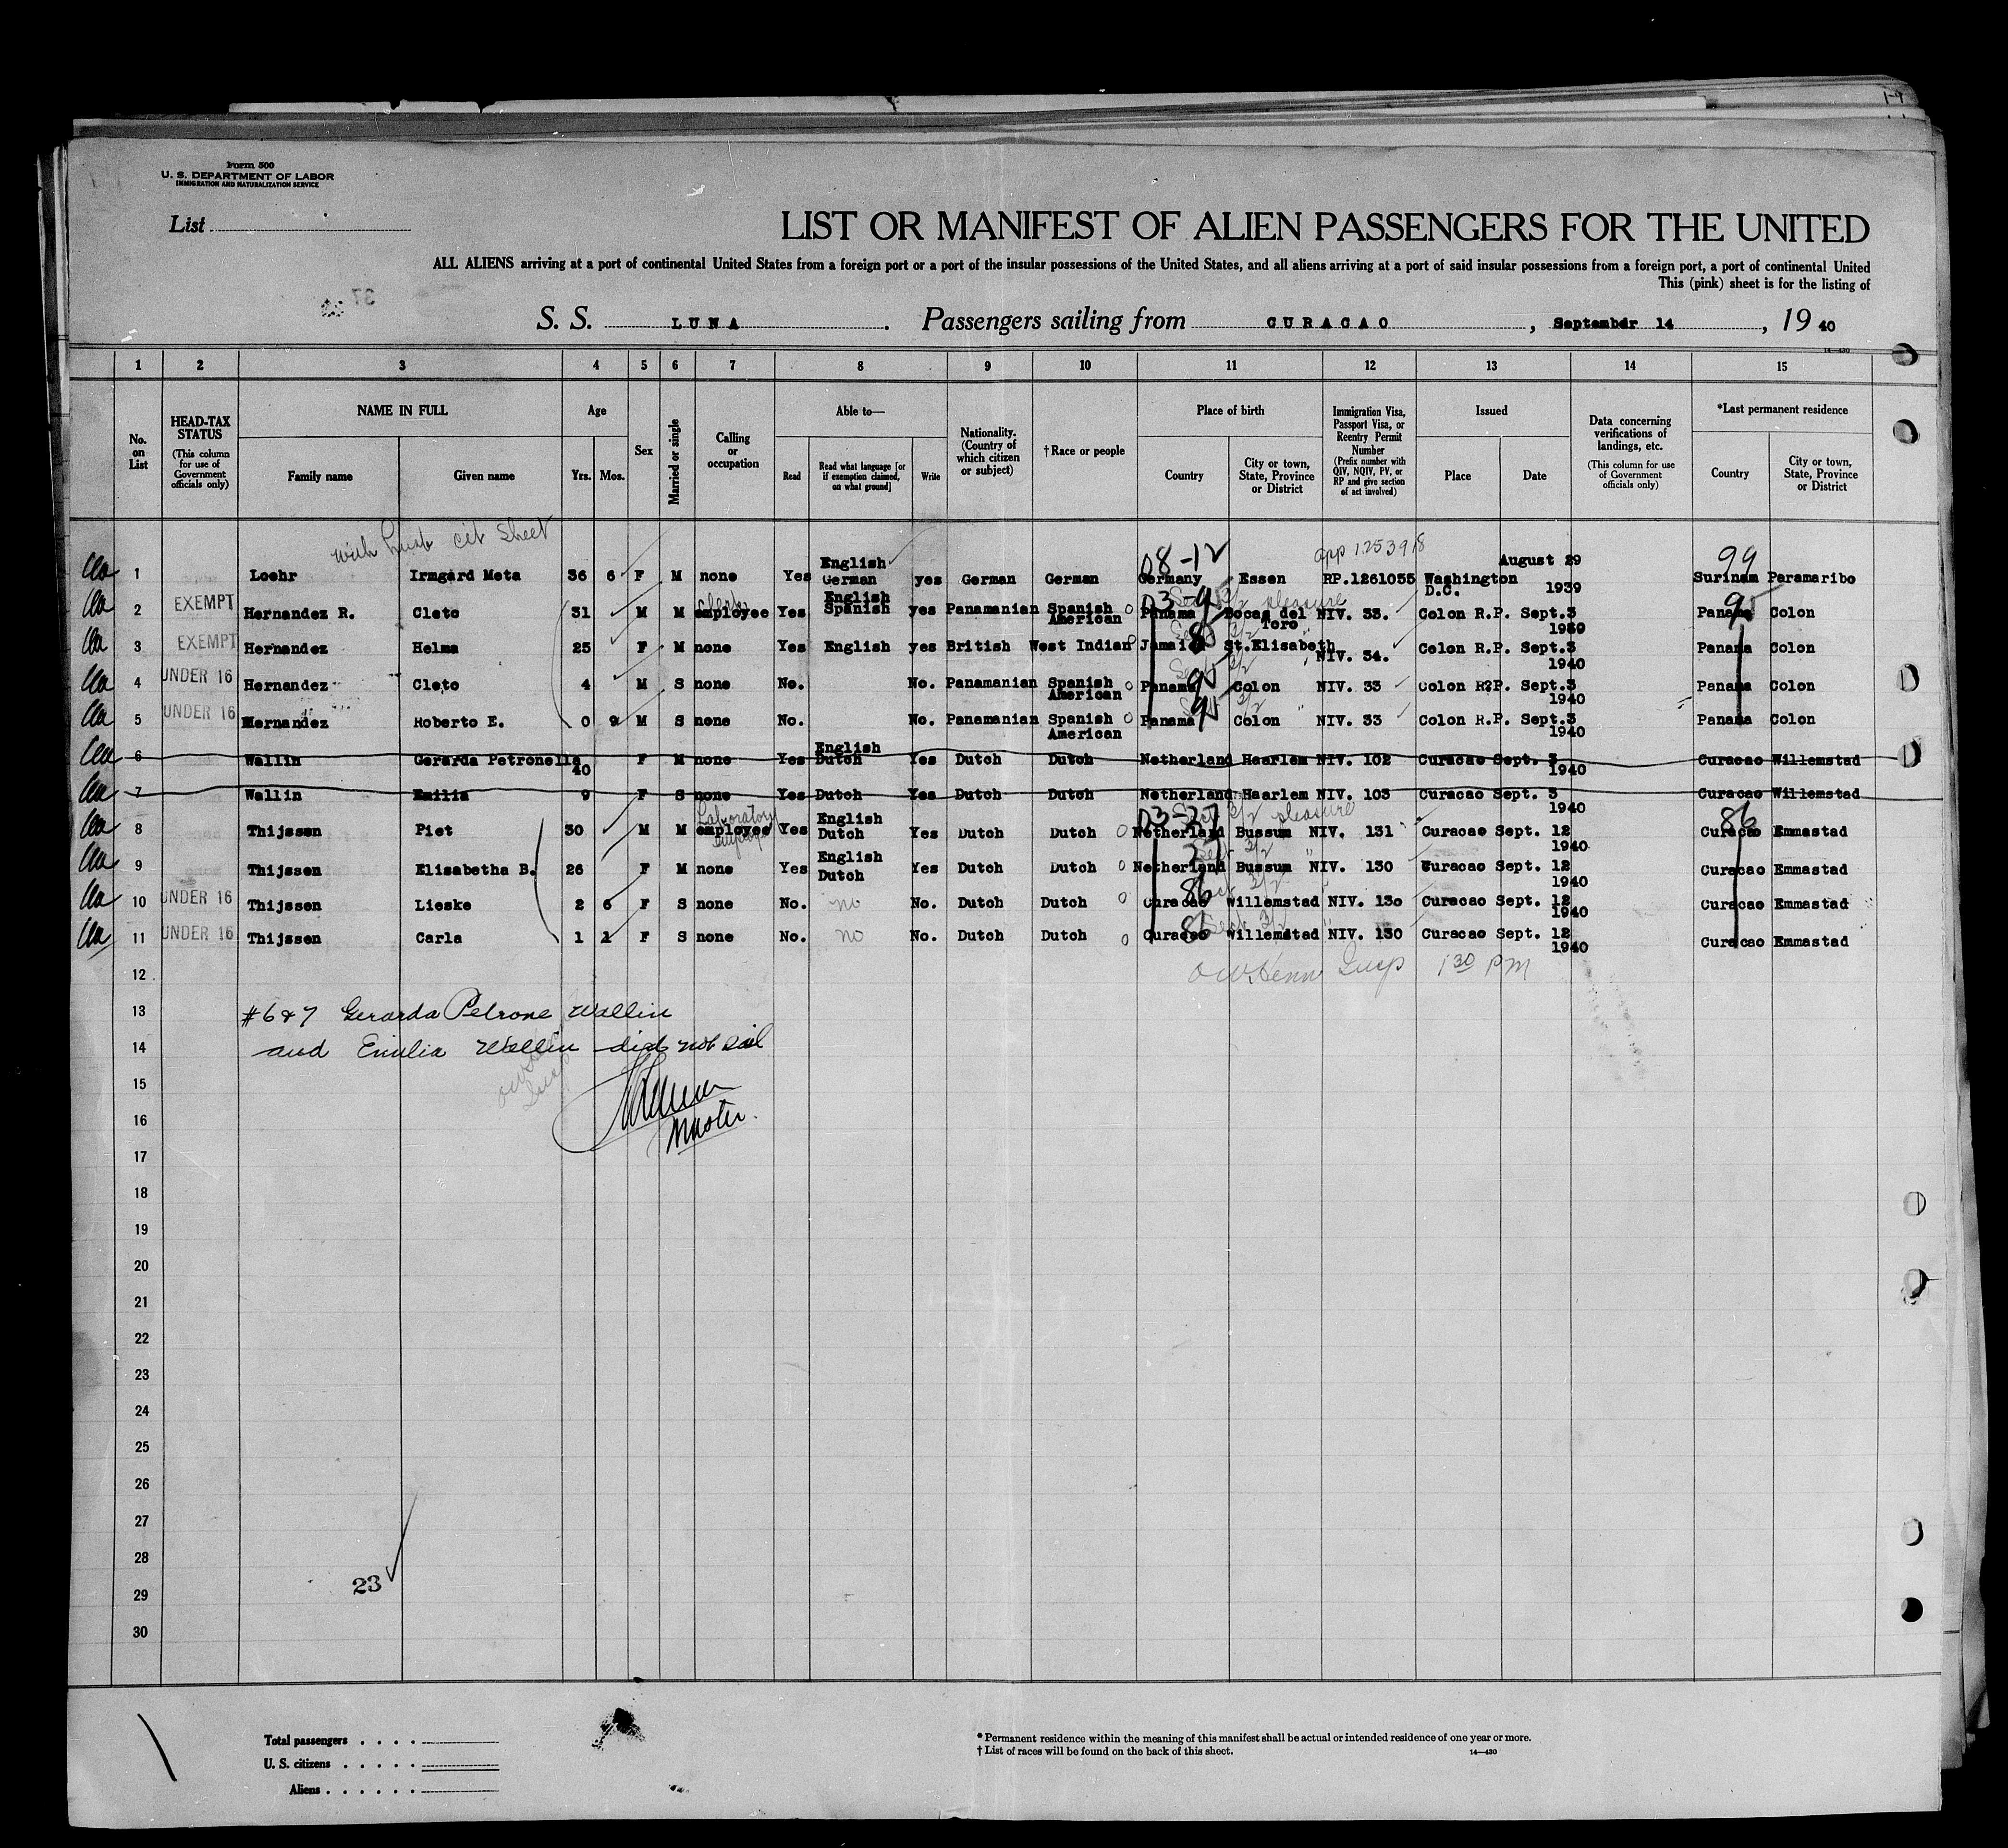 Form 500
U. S. DEPARTMENT OF LABOR
IMMIGRATION AND NATURALIZATION SERVICE
List
LIST OR MANIFEST OF ALIEN PASSENGERS FOR THE UNITED
ALL ALIENS arriving at a port of continental United States from a foreign port or a port of the insular possessions of the United States, and all aliens arriving at a port of said insular possessions from a foreign port, a port of continental United
This (pink) sheet is for the listing of
S. S. LUNA. Passengers sailing from CURACAO, September 14, 19 40
14—430
1 2 3 4 5 6 7 8 9 10 11 12 13 14 15
No. on List
HEAD-TAX STATUS (This column for use of Government officials only)
NAME IN FULL Family name Given name
Age Yrs. Mos.
Sex
Married or single
Calling or occupation
Able to— Read Read what language [or if exemption claimed, on what ground] Write
Nationality. (Country of which citizen or subject)
†Race or people
Place of birth Country City or town, State, Province or District
Immigration Visa, Passport Visa, or Reentry Permit Number (Prefix number with QIV, NQIV, PV, or RP and give section of act involved)
Issued Place Date
Data concerning verifications of landings, etc. (This column for use of Government officials only)
*Last permanent residence Country City or town, State, Province or District
with husb cit sheet
08-12 app 1253918 99
1 Loehr Irmgard Meta 36 6 F M none Yes English German yes German German Germany Essen RP.1261055 Washington D.C. August 29 1939 Surinam Paramaribo
03-95 Sec 3/2 pleasure 95
2 EXEMPT Hernandez R. Cleto 31 M M clerk employee Yes English Spanish yes Panamanian Spanish American Panama Bocas del Toro NIV. 33. Colon R.P. Sept.3 1940 Panama Colon
3 EXEMPT Hernandez Helma 25 F M none Yes English yes British West Indian Jamaica St.Elisabeth NIV. 34. Colon R.P. Sept.3 1940 Panama Colon
4 UNDER 16 Hernandez Cleto 4 M S none No. No. Panamanian Spanish American Panama Colon NIV. 33 Colon R?P. Sept.3 1940 Panama Colon
5 UNDER 16 Hernandez Roberto E. 0 9 M S none No. No. Panamanian Spanish American Panama Colon NIV. 33 Colon R.P. Sept.3 1940 Panama Colon
6 Wallin Gerarda Petronella 40 F M none Yes English Dutch Yes Dutch Dutch Netherland Haarlem NIV. 102 Curacao Sept. 3 1940 Curacao Willemstad
7 Wallin Emilia 9 F S none Yes Dutch Yes Dutch Dutch Netherland Haarlem NIV. 103 Curacao Sept. 3 1940 Curacao Willemstad
03-27 Sec 3/2 pleasure 86
8 Thijssen Piet 30 M M Laboratory employee Yes English Dutch Yes Dutch Dutch Netherland Bussum NIV. 131 Curacao Sept. 12 1940 Curacao Emmastad
9 Thijssen Elisabetha B. 26 F M none Yes English Dutch Yes Dutch Dutch Netherland Bussum NIV. 130 Curacao Sept. 12 1940 Curacao Emmastad
10 UNDER 16 Thijssen Lieske 2 6 F S none No. no No. Dutch Dutch Curacao Willemstad NIV. 130 Curacao Sept. 12 1940 Curacao Emmastad
11 UNDER 16 Thijssen Carla 1 1 F S none No. no No. Dutch Dutch Curacao Willemstad NIV. 130 Curacao Sept. 12 1940 Curacao Emmastad
12 Insp 1 30 PM
13 #6 & 7 Gerarda Petrone Wallin
14 and Emilia Wallin did not sail
15
16 Master.
17
18
19
20
21
22
23
24
25
26
27
28
23
29
30
Total passengers
U. S. citizens
Aliens
* Permanent residence within the meaning of this manifest shall be actual or intended residence of one year or more.
† List of races will be found on the back of this sheet.
14—430